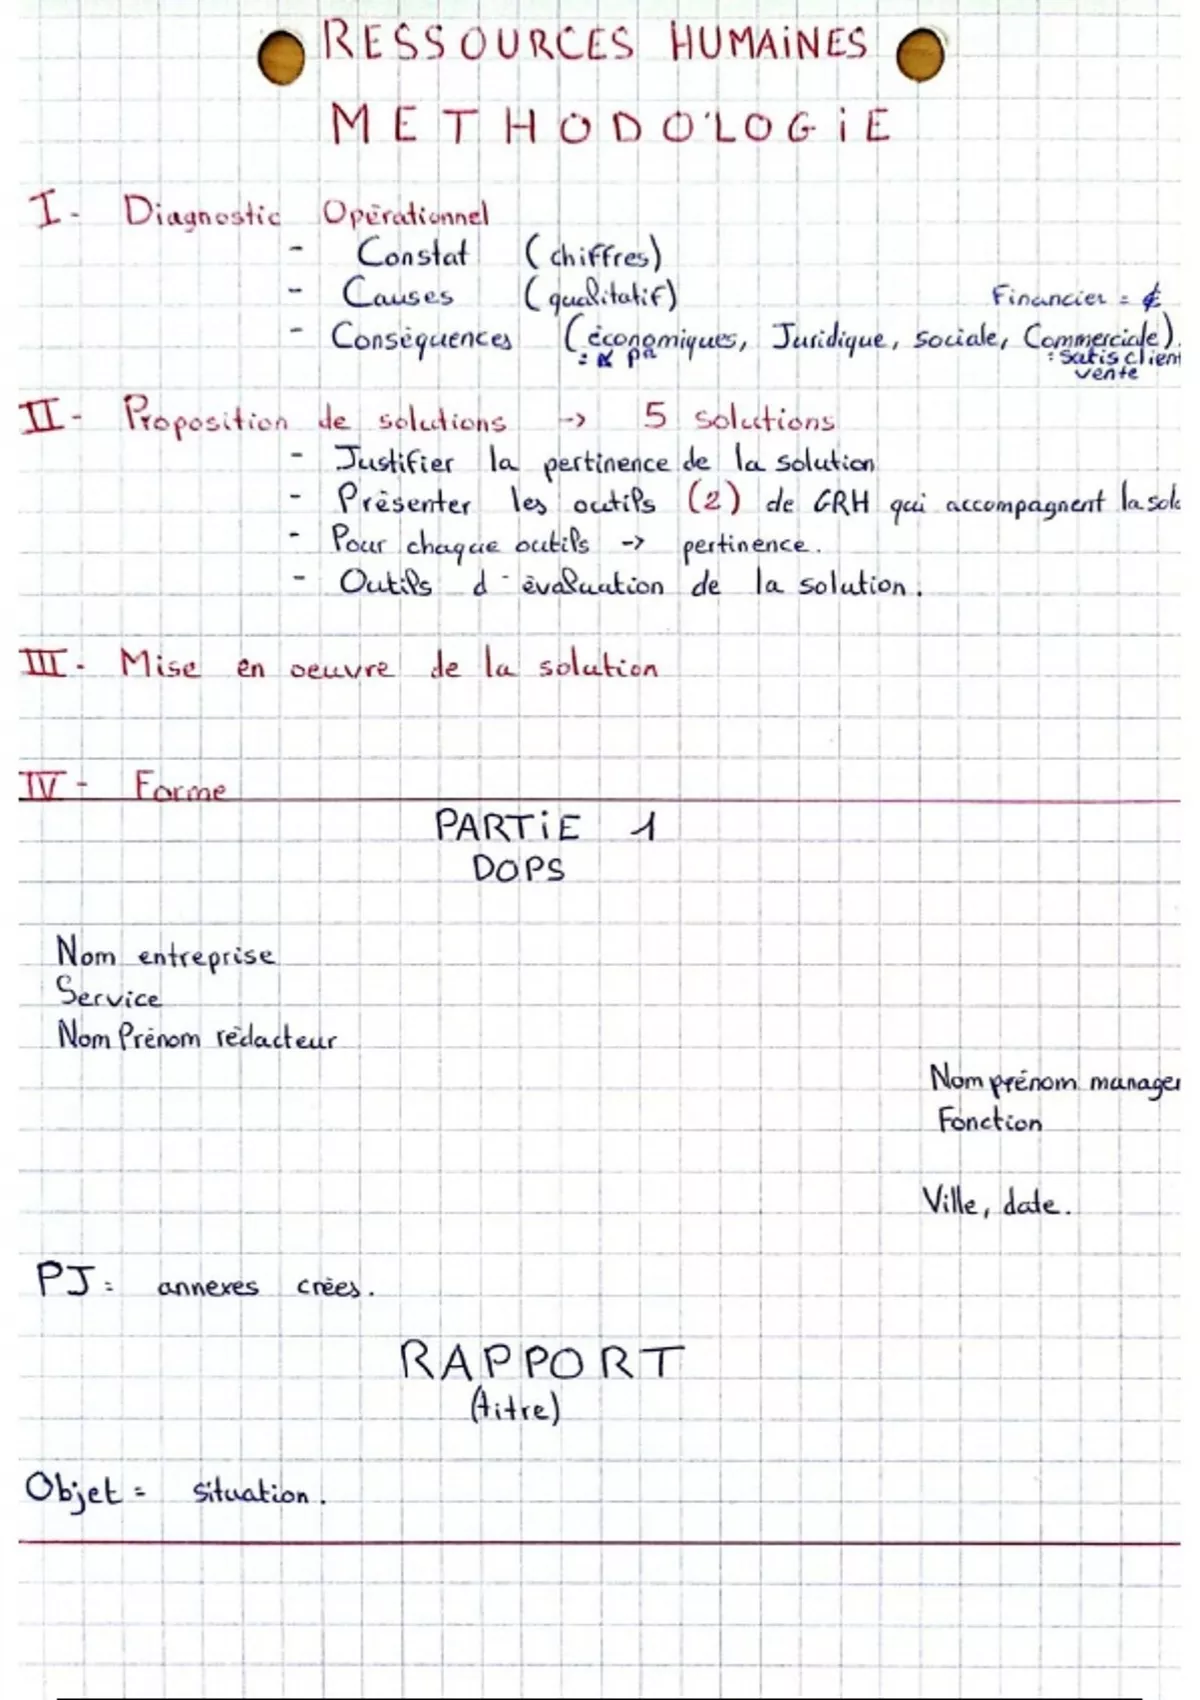 RESSOURCES HUMAINES
METHODOLOGIE
I- Diagnostic Opérationnel
- Constat (chiffres)
- Causes (qualitatif)
Financier = €
- Conséquences (économiques, Juridique, sociale, Commerciale).
: satis client
vente
II- Proposition de solutions -> 5 solutions
- Justifier la pertinence de la solution
- Présenter les outils (2) de GRH qui accompagnent la solo
- Pour chaque outils -> pertinence.
- Outils d'évaluation de la solution.
III- Mise en oeuvre de la solution
IV- Forme
PARTIE 1
DOPS
Nom entreprise
Service
Nom Prénom rédacteur
Nom prénom manager
Fonction
Ville, date.
PJ: annexes crées.
RAPPORT
(titre)
Objet = situation.